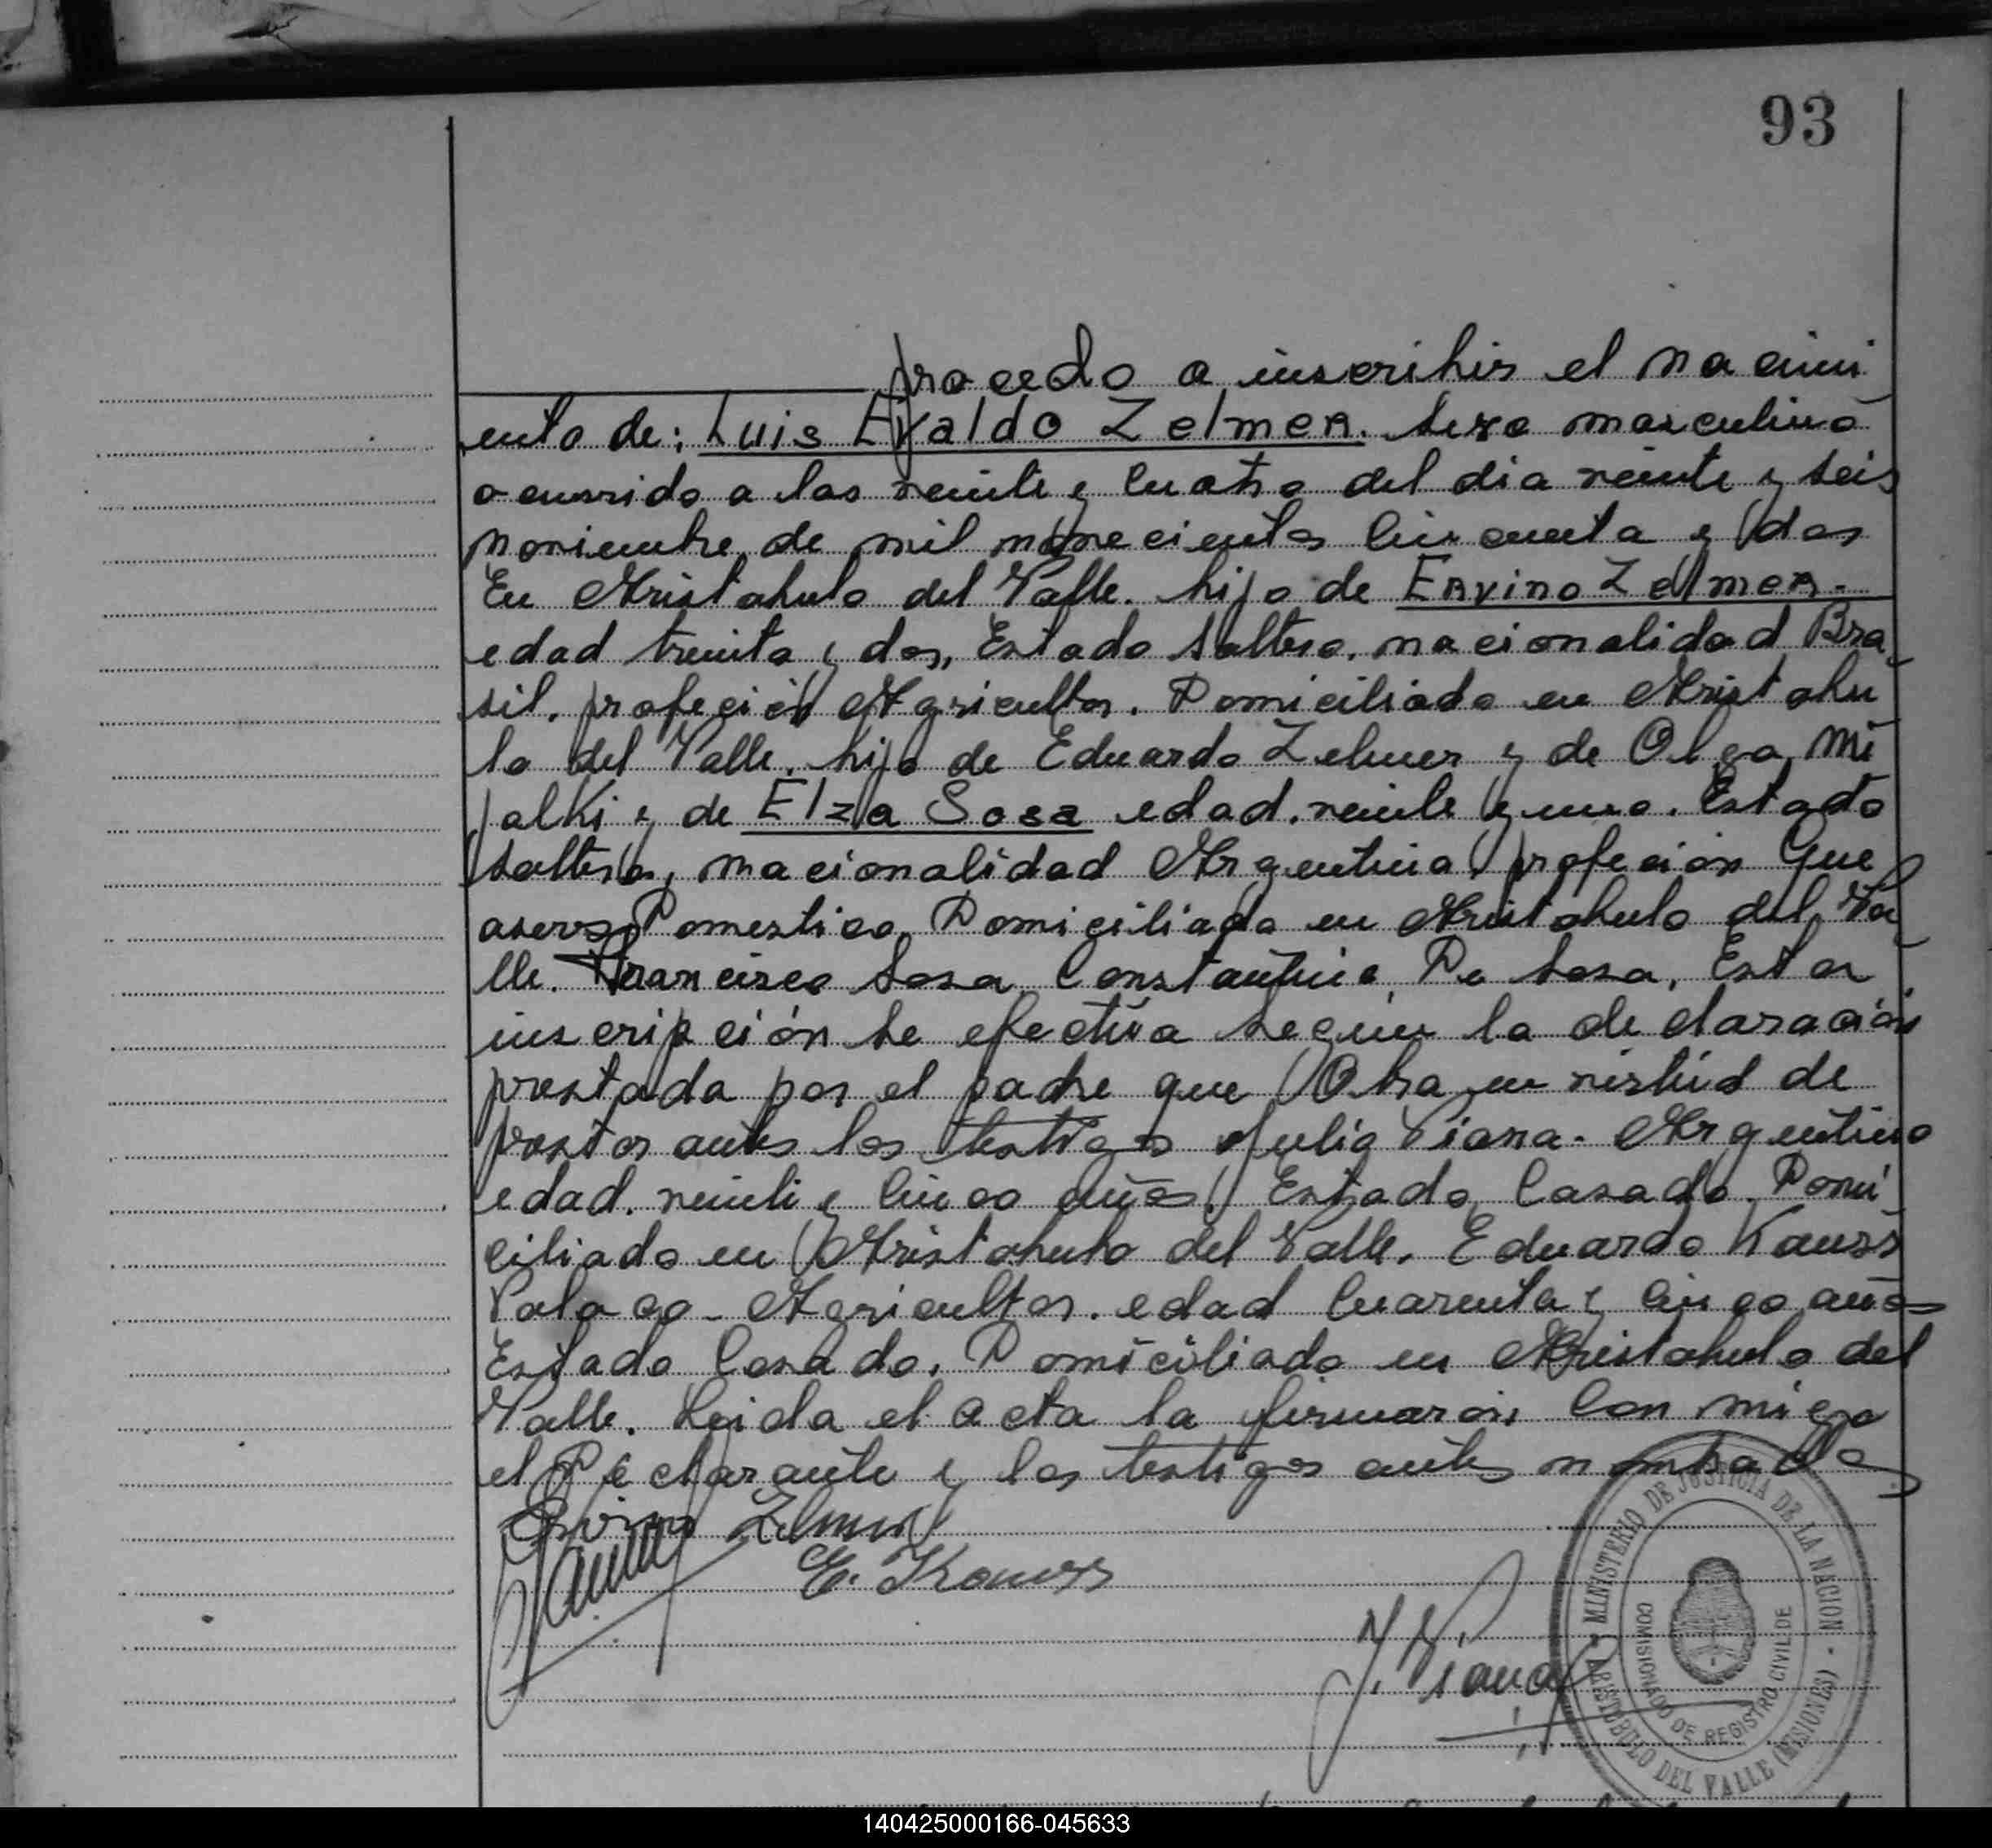 93
procedo a inscribir el nacimi
ento de: Luis Evaldo Zelmer. Sexo masculino
ocurrido a las veinte y cuatro del dia veinte y seis
noviembre de mil novecientos cincuenta y dos
En Aristobulo del Valle. hijo de Ervino Zelmer.-
edad treinta y dos, Estado Soltero, nacionalidad Bra
sil, profeción Agricultor. Domiciliado en Aristobu
lo del Valle. hijo de Eduardo Zelmer y de Olga Mi
jalki y de Elza Sosa edad. veinte y uno. Estado
soltera, nacionalidad Argentina, profeción Que
aseres Domestico, Domiciliada en Aristobulo del Va
lle. Francisco Sosa Constantina De Sosa, Esta
inscripción se efectúa según la declaración
prestada por el padre que Obra en virtúd de
ante los testigos Julio Viana - Argentino
edad. veinte y cinco años, Estado Casado, Domi
ciliado en Aristobulo del Valle. Eduardo Kauss
Polaco - Agricultor. edad Cuarenta y cinco años
Estado Casado. Domiciliado en Aristobulo del
Valle. Leida el acta la firmaron Con migo
el Declarante y los testigos antes nombrados
Ervino Zelmer
E. Kauss
J. Viana
MINISTERIO DE JUSTICIA DE LA NACION
COMISIONADO DE REGISTRO CIVIL DE
ARISTOBULO DEL VALLE (MISIONES)
140425000166-045633